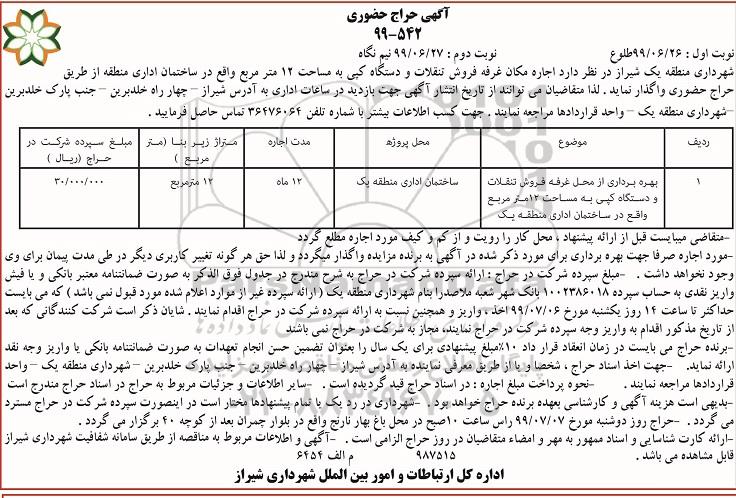 آگهی حراج حضوری
۹۹-۵۴۲
نوبت اول : ۹۹/۰۶/۲۶طلوع
نوبت دوم : ۹۹/۰۶/۲۷ نیم نگاه
شهرداری منطقه یک شیراز در نظر دارد اجاره مکان غرفه فروش تنقلات و دستگاه کپی به مساحت ۱۲ متر مربع واقع در ساختمان اداری منطقه از طریق
حراج حضوری واگذار نماید . لذا متقاضیان می توانند از تاریخ انتشار آگهی جهت بازدید در ساعات اداری به آدرس شیراز – چهار راه خلدبرین – جنب پارک خلدبرین
–شهرداری منطقه یک – واحد قراردادها مراجعه نمایند . جهت کسب اطلاعات بیشتر با شماره تلفن ۳۶۴۷۶۰۶۴ تماس حاصل فرمایید .
ردیف
موضوع
محل پروژه
مدت اجاره
متراژ زیر بنا (متر مربع )
مبلغ سپرده شرکت در حراج (ریال )
۱
بهره برداری از محل غرفه فروش تنقلات
و دستگاه کپی به مساحت ۱۲متر مربع
واقع در ساختمان اداری منطقه یک
ساختمان اداری منطقه یک
۱۲ ماه
۱۲ مترمربع
۳۰/۰۰۰/۰۰۰
–متقاضی میبایست قبل از ارائه پیشنهاد ، محل کار را رویت و از کم و کیف مورد اجاره مطلع گردد
–مورد اجاره صرفا جهت بهره برداری برای مورد ذکر شده در آگهی به برنده مزایده واگذار میگردد و لذا حق هر گونه تغییر کاربری دیگر در طی مدت پیمان برای وی
وجود نخواهد داشت . –مبلغ سپرده شرکت در حراج : ارائه سپرده شرکت در حراج به شرح مندرج در جدول فوق الذکر به صورت ضمانتنامه معتبر بانکی و یا فیش
واریز نقدی به حساب سپرده ۱۰۰۲۳۸۶۰۱۸ بانک شهر شعبه ملاصدرا بنام شهرداری منطقه یک ( ارائه سپرده غیر از موارد اعلام شده مورد قبول نمی باشد ) که می بایست
حداکثر تا ساعت ۱۴ روز یکشنبه مورخ ۹۹/۰۷/۰۶ اخذ، واریز و همچنین نسبت به ارائه سپرده شرکت در حراج اقدام نمایند . شایان ذکر است شرکت کنندگانی که بعد
از تاریخ مذکور اقدام به واریز وجه سپرده شرکت در حراج نمایند، مجاز به شرکت در حراج نمی باشند
–برنده حراج می بایست در زمان انعقاد قرار داد ۱۰٪مبلغ پیشنهادی برای یک سال را بعنوان تضمین حسن انجام تعهدات به صورت ضمانتنامه بانکی یا واریز وجه نقد
ارائه نماید. –جهت اخذ اسناد حراج ، شخصا و یا از طریق معرفی نماینده به آدرس شیراز– چهار راه خلدبرین – جنب پارک خلدبرین – شهرداری منطقه یک – واحد
قراردادها مراجعه نمایند . –نحوه پرداخت مبلغ اجاره : در اسناد حراج قید گردیده است . –سایر اطلاعات و جزئیات مربوط به حراج در اسناد حراج مندرج است
–بدیهی است هزینه آگهی و کارشناسی بعهده برنده حراج خواهد بود . –شهرداری در رد یک یا تمام پیشنهادها مختار است در اینصورت سپرده شرکت در حراج مسترد
می گردد . –حراج روز دوشنبه مورخ ۹۹/۰۷/۰۷ راس ساعت ۱۰صبح در محل باغ بهار نارنج واقع در بلوار چمران بعد از کوچه ۴۰ برگزار می گردد .
–ارائه کارت شناسایی و اسناد ممهور به مهر و امضاء متقاضیان در روز حراج الزامی است . –آگهی و اطلاعات مربوط به مناقصه از طریق سامانه شفافیت شهرداری شیراز
قابل مشاهده می باشد . ۹۸۷۵۱۵ م الف ۶۴۵۴
اداره کل ارتباطات و امور بین الملل شهرداری شیراز